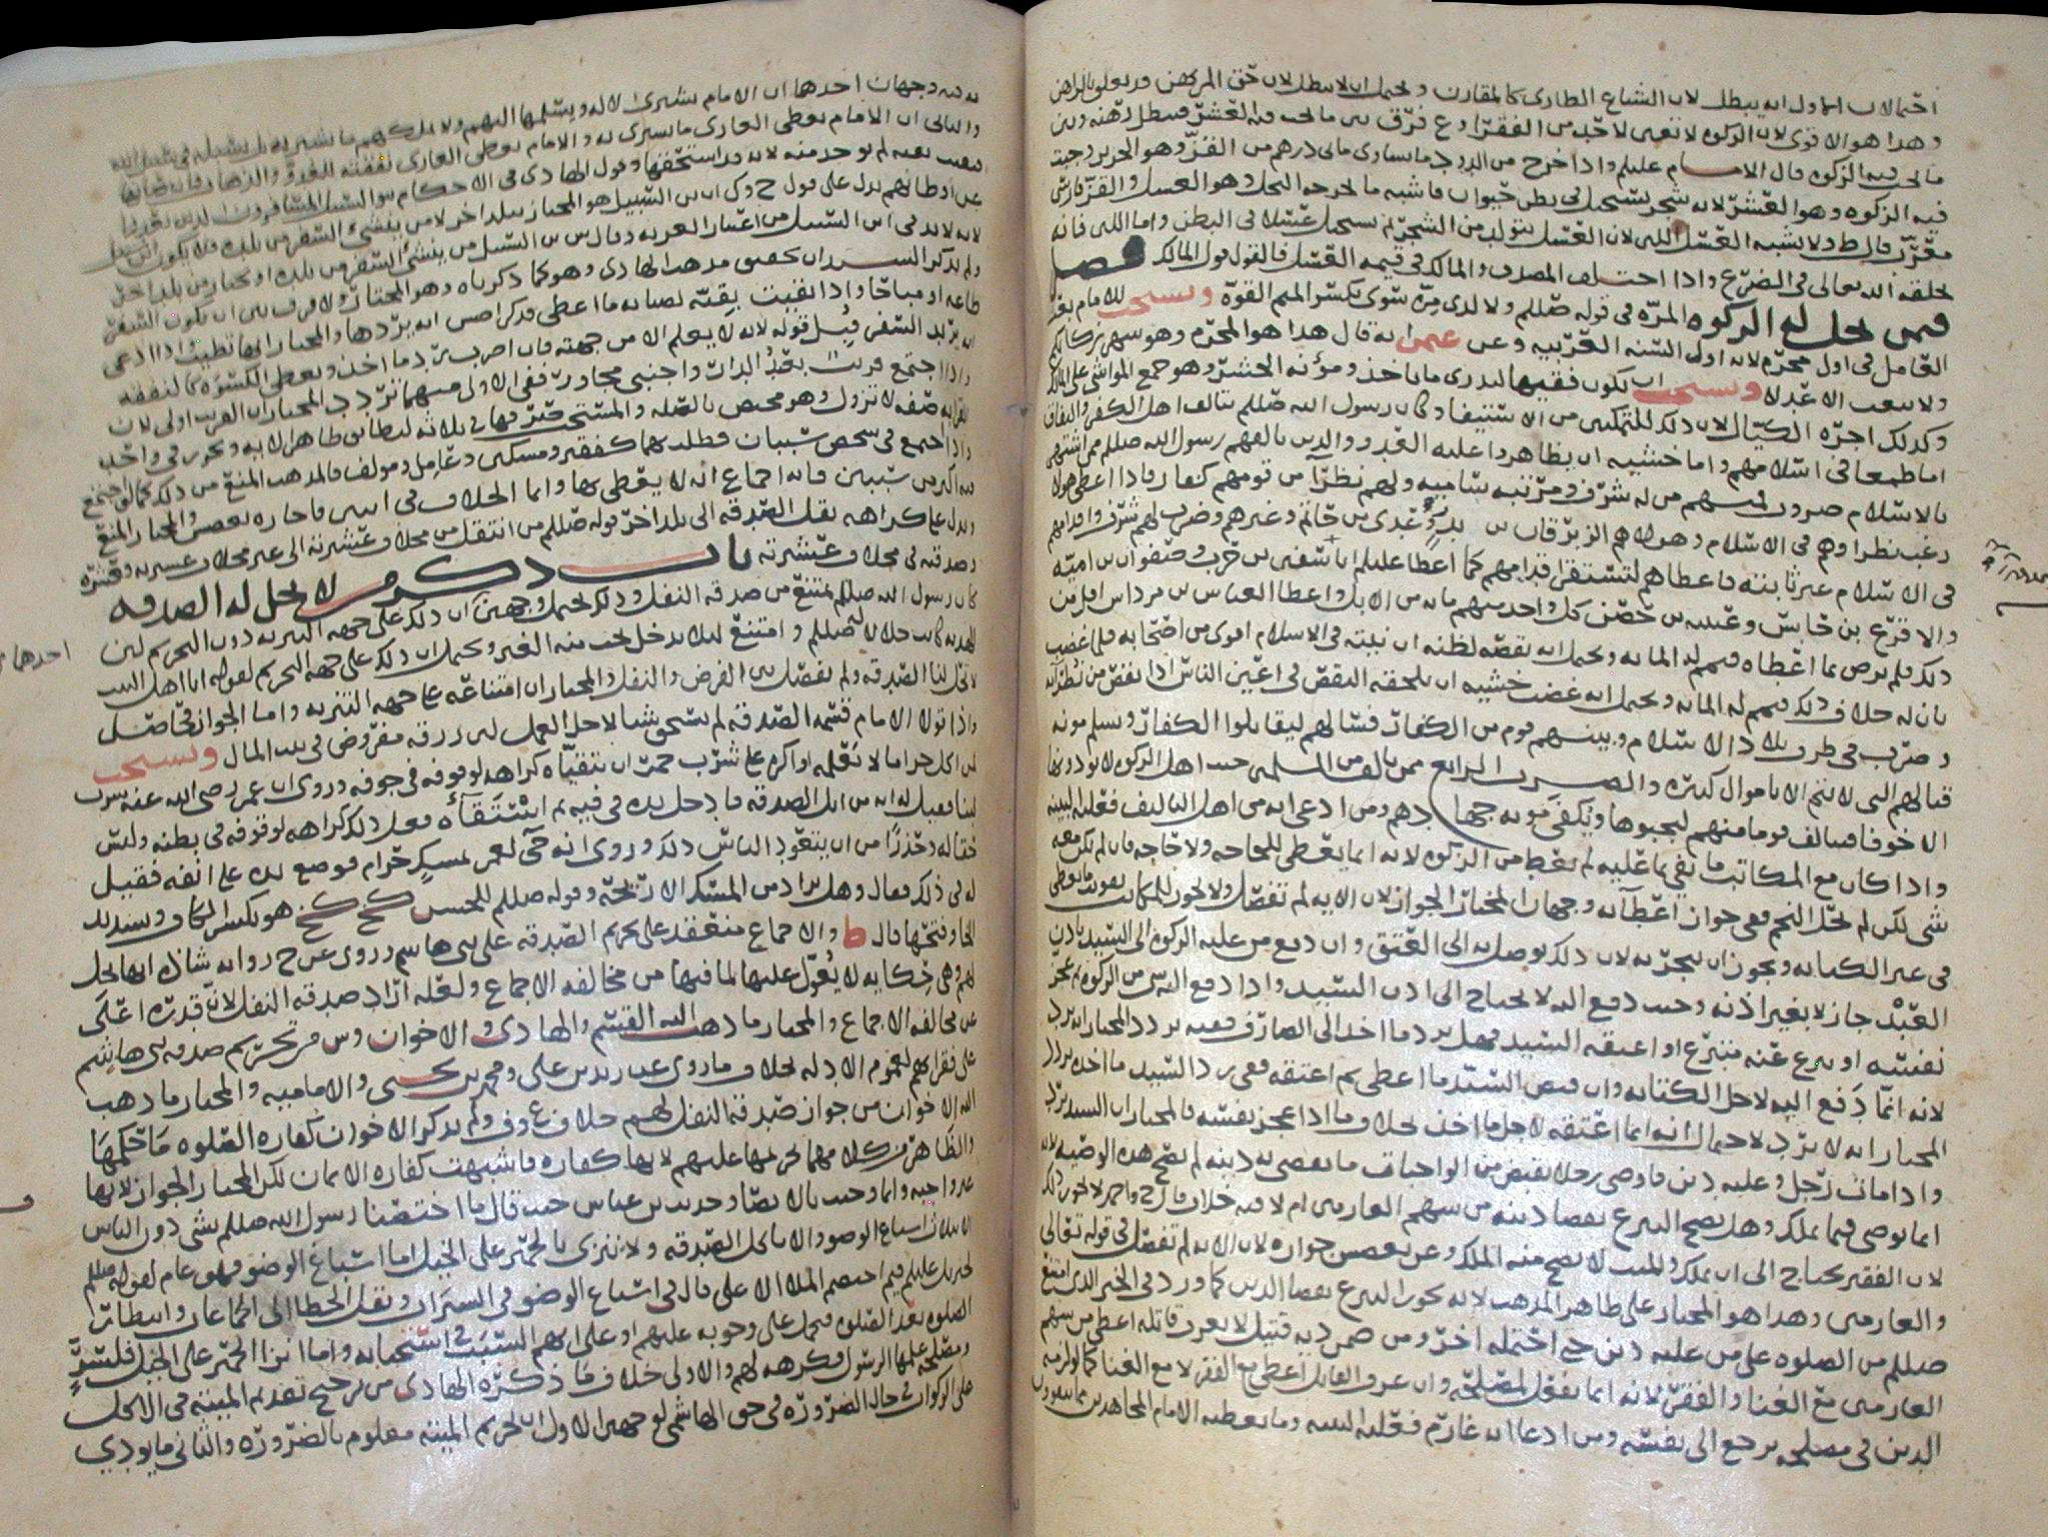 احتمالان الاول انه يبطل لان الشياع الطارى كالمقارن و يحتمل ان لا يبطل لان حق المرتهن قد تعلق بالراهن
وهذا هو الاقوى لان الزكوه لا تتعين لاحد من الفقرا وع فرق بين ما يجب فيه العشر فيبطل رهنه وبين
ما يجب فيه الزكوه قال الامام عليلم واذا خرج من الدود ما يساوى مايى درهم من القز وهو الحرير وجبت
فيه الزكوه وهو العشر لانه شجر يستحيل فى بطن حيوان فاشبه ما يخرجه النحل وهو العسل والقز فارسى
معرب قال ط ولا يشبه العسل اللبن لان العسل يتولد من الشجر ثم يستحيل عسلا فى البطن واما اللبن فانه
يخلقه الله تعالى فى الضرع واذا اختلف المصدق والمالك فى قيمه العسل فالقول قول المالك فصل
فيمن تحل له الزكوه المره فى قوله صللم ولا لذى مره سوى بكسر الميم القوه ويستحب للامام
العامل فى اول محرم لانه اول السنه العربيه وعن عثمن انه قال هذا هو المحرم وهو شهر زكاتكم
ولا يبعث الا عدلا ويستحب ان يكون فقيها ليدرى ما ياخذ ومؤنه الحشر وهو جمع المواشى على المالك
وكذلك اجره الكيال لان ذلك للتمكين من الاستيفا وكان رسول الله صللم يتالف اهل الكفر والنفاق
اما طمعا فى اسلامهم واما خشيه ان يظاهروا عليه العدو والذين تالفهم رسول الله صللم ممن اشتهر
بالاسلام ضروب منهم من له شرف ومرتبه ساميه ولهم نظرا من قومهم كفار فاذا اعطى هولا
رغب نظراوهم فى الاسلام وهولاهم الزبرقان بن بدر وعدى بن حاتم وغيرهم وضرب لهم شرف واقدامهم
فى الاسلام غير ثابته فاعطاهم لتستقر اقدامهم كما اعطا عليلم ابا سفين بن حرب وصفوان بن اميه
والاقرع بن حابس وعيينه بن حصن كل واحد منهم مايه من الابل واعطا العباس بن مرداس اقل من
ذلك فلم يرض بما اعطاه فتمم له المايه ويحتمل انه نقصه لظنه ان نيته فى الاسلام اقوى من اصحابه فلما غضب
بان له خلاف ذلك فتمم له المايه ويحتمل انه غضب خشيه ان يلحقه النقص فى اعين الناس اذا نقص من نظرايه
وضرب فى طرف بلاد الاسلام وبينهم قوم من الكفار فسالهم ليقاتلوا الكفار
قتالهم التى لا تتم الا باموال كثيره والضرب الرابع ممن تالف من المسلمين حيث اهل الزكوه لا يودونها
الا خوفا فيتالف قوما منهم ليجبوها ويكفى مونه
واذا كان مع المكاتب ما يفى بما عليه لم يعط من الزكوه لانه انما يعطى للحاجه ولا حاجه فان لم يكن معه
شى لكن لم يحل النجم ففى جواز اعطآئه وجهان المختار الجواز لان الايه لم تفصل ولا يجوز للمكاتب
فى غير الكتابه ويجوز ان يتجر به لان ذلك توصل به الى العتق وان دفع من عليه الزكوه الى السيد باذن
العبد جاز لا بغير اذنه وحيث دفع اليه لا يحتاج الى اذن السيد واذا دفع اليه من الزكوه ثم عجز
نفسه او تبرع عنه متبرع او اعتقه السيد فهل يرد ما اخذ الى الصارف ففيه تردد المختار انه يرد
لانه انما دفع اليه لاجل الكتابه وان قبض السيد ما اعطى ثم اعتقه ففى رد السيد ما اخذه تردد
المختار انه لا يرد لاحتمال انه انما اعتقه لاجل ما اخذ بخلاف ما اذا عجز نفسه فالمختار ان السيد يرد
واذا مات رجل وعليه دين فاوصى رجلا يقبض من الواجبات ما يقضى به دينه لم تصح هذه الوصيه لانه
انما يوصى فيما يملك وهل يصح التبرع بقضا دينه من سهم الغارمين ام لا فيه خلاف
لان الفقير يحتاج الى ان يملك والميت لا يصح منه الملك وعن بعضهم جوازه لان الايه لم تفصل فى قوله تعالى
والغارمين وهذا هو المختار على ظاهر المذهب لانه يجوز التبرع بقضا الدين كما ورد فى الخبر الذى امتنع
صللم من الصلوه على من عليه دين حتى احتمله اخر ومن ضمن ديه قتيل لا يعرف قاتله اعطى من سهم
الغارمين مع الغنا والفقر لانه انما يفعل لمصلحه وان عرف القاتل اعطى مع الفقر لا مع الغنا
الدين فى مصلحه يرجع الى نفسه ومن ادعا انه غارم فعليه البينه وما يعطيه الامام المجاهدين
فيه وجهان احدهما ان الامام يشترى الاله ويسلمها اليهم
والثانى ان الامام يعطى الغازى ما يشترى به والامام يعطى الغازى نفقته
عن اوطانهم يدل على قول ح وك ان ابن السبيل هو المجتاز ببلد اخر لا من ينشئ السفر من بلده
ولم يذكر السيدان تحقيق مذهب الهادى وهو كما ذكرناه وهو المختار ولا فرق بين ان يكون السفر
طاعه او مباحا واذا بقيت بقيه لصيانه ما اعطى فذكر انه يردها والمختار انها تطيب واذا ادعى
انه يريد السفر قبل قوله لانه لا يعلم الا من جهته فان اضرب رد ما اخذ ويعطى الكسوه كالنفقه
واذا اجتمع قريب بعيد الدار واجنبى مجاور ففى الاولى منهما تردد المختار ان القريب اولى لان
القرابه صفه لا تزول وهو مختص بالصله والمستحب تفرقها فى ثلاثه ليطابق ظاهر الايه ويجوز فى واحد
واذا اجتمع فى شخص سببان فطلب بهما كفقير ومسكين وعامل ومولف فالمذهب المنع
من اكثر من سببين فانه اجماع انه لا يعطى بها وانما الخلاف فى اثنين فاجازه بعضهم والمختار المنع
ويدل على كراهه نقل الصدقه الى بلد اخر قوله صللم من انتقل من مخلاف عشيرته الى غير مخلاف عشيرته فعشره
وصدقته فى مخلاف عشيرته باب ذكر من لا تحل له الصدقه
كان رسول الله صللم يمتنع من صدقه النفل وذلك يحتمل وجهين ان ذلك على جهه التنزيه دون التحريم
الهديه كانت حلالا له صللم وامتنع ليلا يدخل تحت منه الغير ويحتمل ان ذلك على جهه التحريم لقوله انا اهل البيت
لا تحل لنا الصدقه ولم يفصل بين الفرض والنفل والمختار ان امتناعه على جهه التنزيه واما الجواز فحاصل
واذا تولا الامام قسمه الصدقه لم يستحق شيا لاجل العمل لان رزقه مفروض فى بيت المال ويستحب
لمن اكل حراما لا يعلمه او اكره على شرب خمر ان يتقيآه كراهه لوقوفه فى جوفه وروى ان عمر رضى الله عنه شرب
لبنا فقيل له انه من ابل الصدقه فادخل يده فى فيه ثم استقآه فعل ذلك كراهه لوقوفه فى بطنه وليس
حتما له وحذرا من ان يتعود الناس ذلك وروى انه حمى لعمر بمسكر حرام فوضع يده على انفه فقيل
له فى ذلك فقال وهل يراد من المسك الا ريحه وقوله صللم للحسن كخ كخ هو بكسر الكاف وتشديد
الخا وفتحها قال ط والاجماع منعقد على تحريم الصدقه على بنى هاشم وروى عن ح روايه شاذه انها تحل
لهم وهى حكايه لا يعول عليها لما فيها من مخالفه الاجماع ولعله اراد صدقه النفل لان قدره اعلى
عن مخالفه الاجماع والمختار ما ذهب اليه القسم والهادى والاخوان وش من تحريم صدقه بنى هاشم
على فقرايهم لعموم الادله بخلاف ما روى عن زيد بن على ومحمد بن يحيى والاماميه والمختار ما ذهب
اليه الاخوان من جواز صدقه النفل لهم خلاف ع وف ولم يذكر الاخوان كفاره الصلوه ما حكمها
والظاهر من كلامهما تحريمها عليهم لانها كفاره فاشبهت كفاره الايمان لكن المختار الجواز لانها
غير واجبه وانما وجبت بالايصا وحديث بن عباس حيث قال ما اختصنا رسول الله صللم بشى دون الناس
الا بثلاث اسباغ الوضو والا ناكل الصدقه ولا ننزى الحمير على الخيل اما اسباغ الوضو فهو عام لقوله صللم
لجبريل عليلم فيم اختصم الملا الاعلى قال فى اسباغ الوضو فى السبرات ونقل الخطا الى الجماعات وانتظار
الصلوه بعد الصلوه فيحمل على وجوبه عليهم او على انهم السبب فى استحبابه واما انزا الحمير على الخيل
ومصلحه علمها الرسول فكرهه لهم والاولى خلاف ما ذكره الهادى من ترجيح تقديم الميته فى الاكل
على الزكوات فى حال الضروره فى حق الهاشمى لوجهين الاول ان تحريم الميته معلوم بالضروره والثانى ما يودي
احدهما